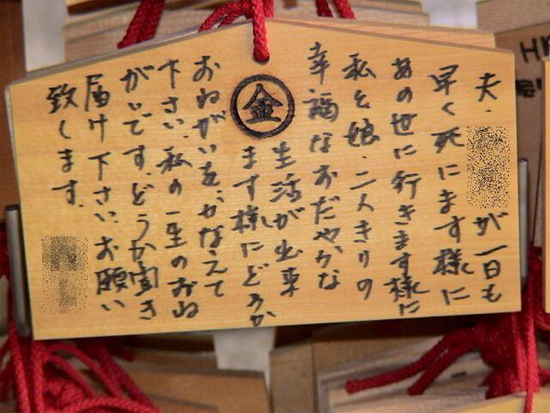 夫、が一日も
早く死にます様に
あの世に行きます様に
私と娘、二人きりの
幸福なおだやかな
生活が出来
ます様にどうか
おねがいを、かなえて
下さい、私の一生のおね
がいです。どうか聞き
届け下さい。お願い
致します。
金